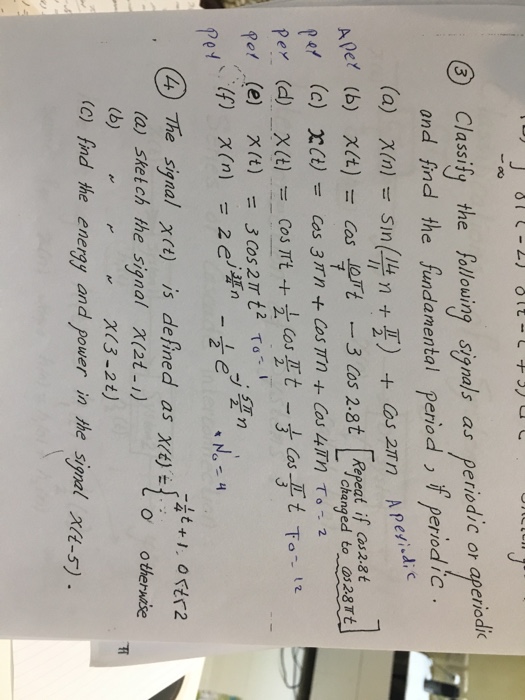 ③ Classify the following signals as periodic or aperiodic
and find the fundamental period, if periodic.
(a) x(n) = sin(14/11 n + π/2) + cos 2πn Aperiodic
Aper (b) x(t) = cos 10π/7 t - 3 cos 2.8t [Repeat if cos 2.8t changed to cos 2.8πt]
per (c) x(t) = cos 3πn + cos πn + cos 4πn T₀ = 2
per (d) x(t) = cos πt + 1/2 cos π/2 t - 1/3 cos π/3 t T₀ = 12
per (e) x(t) = 3 cos 2πt² T₀ = 1
per (f) x(n) = 2 e^(j 3π/4 n) - 1/2 e^(-j 5π/2 n) N₀ = 4
④ The signal x(t) is defined as x(t) = { -1/4 t + 1 . 0 < t < 2
0 otherwise
(a) sketch the signal x(2t-1)
(b) " " " x(3-2t)
(c) find the energy and power in the signal x(t-5).
π